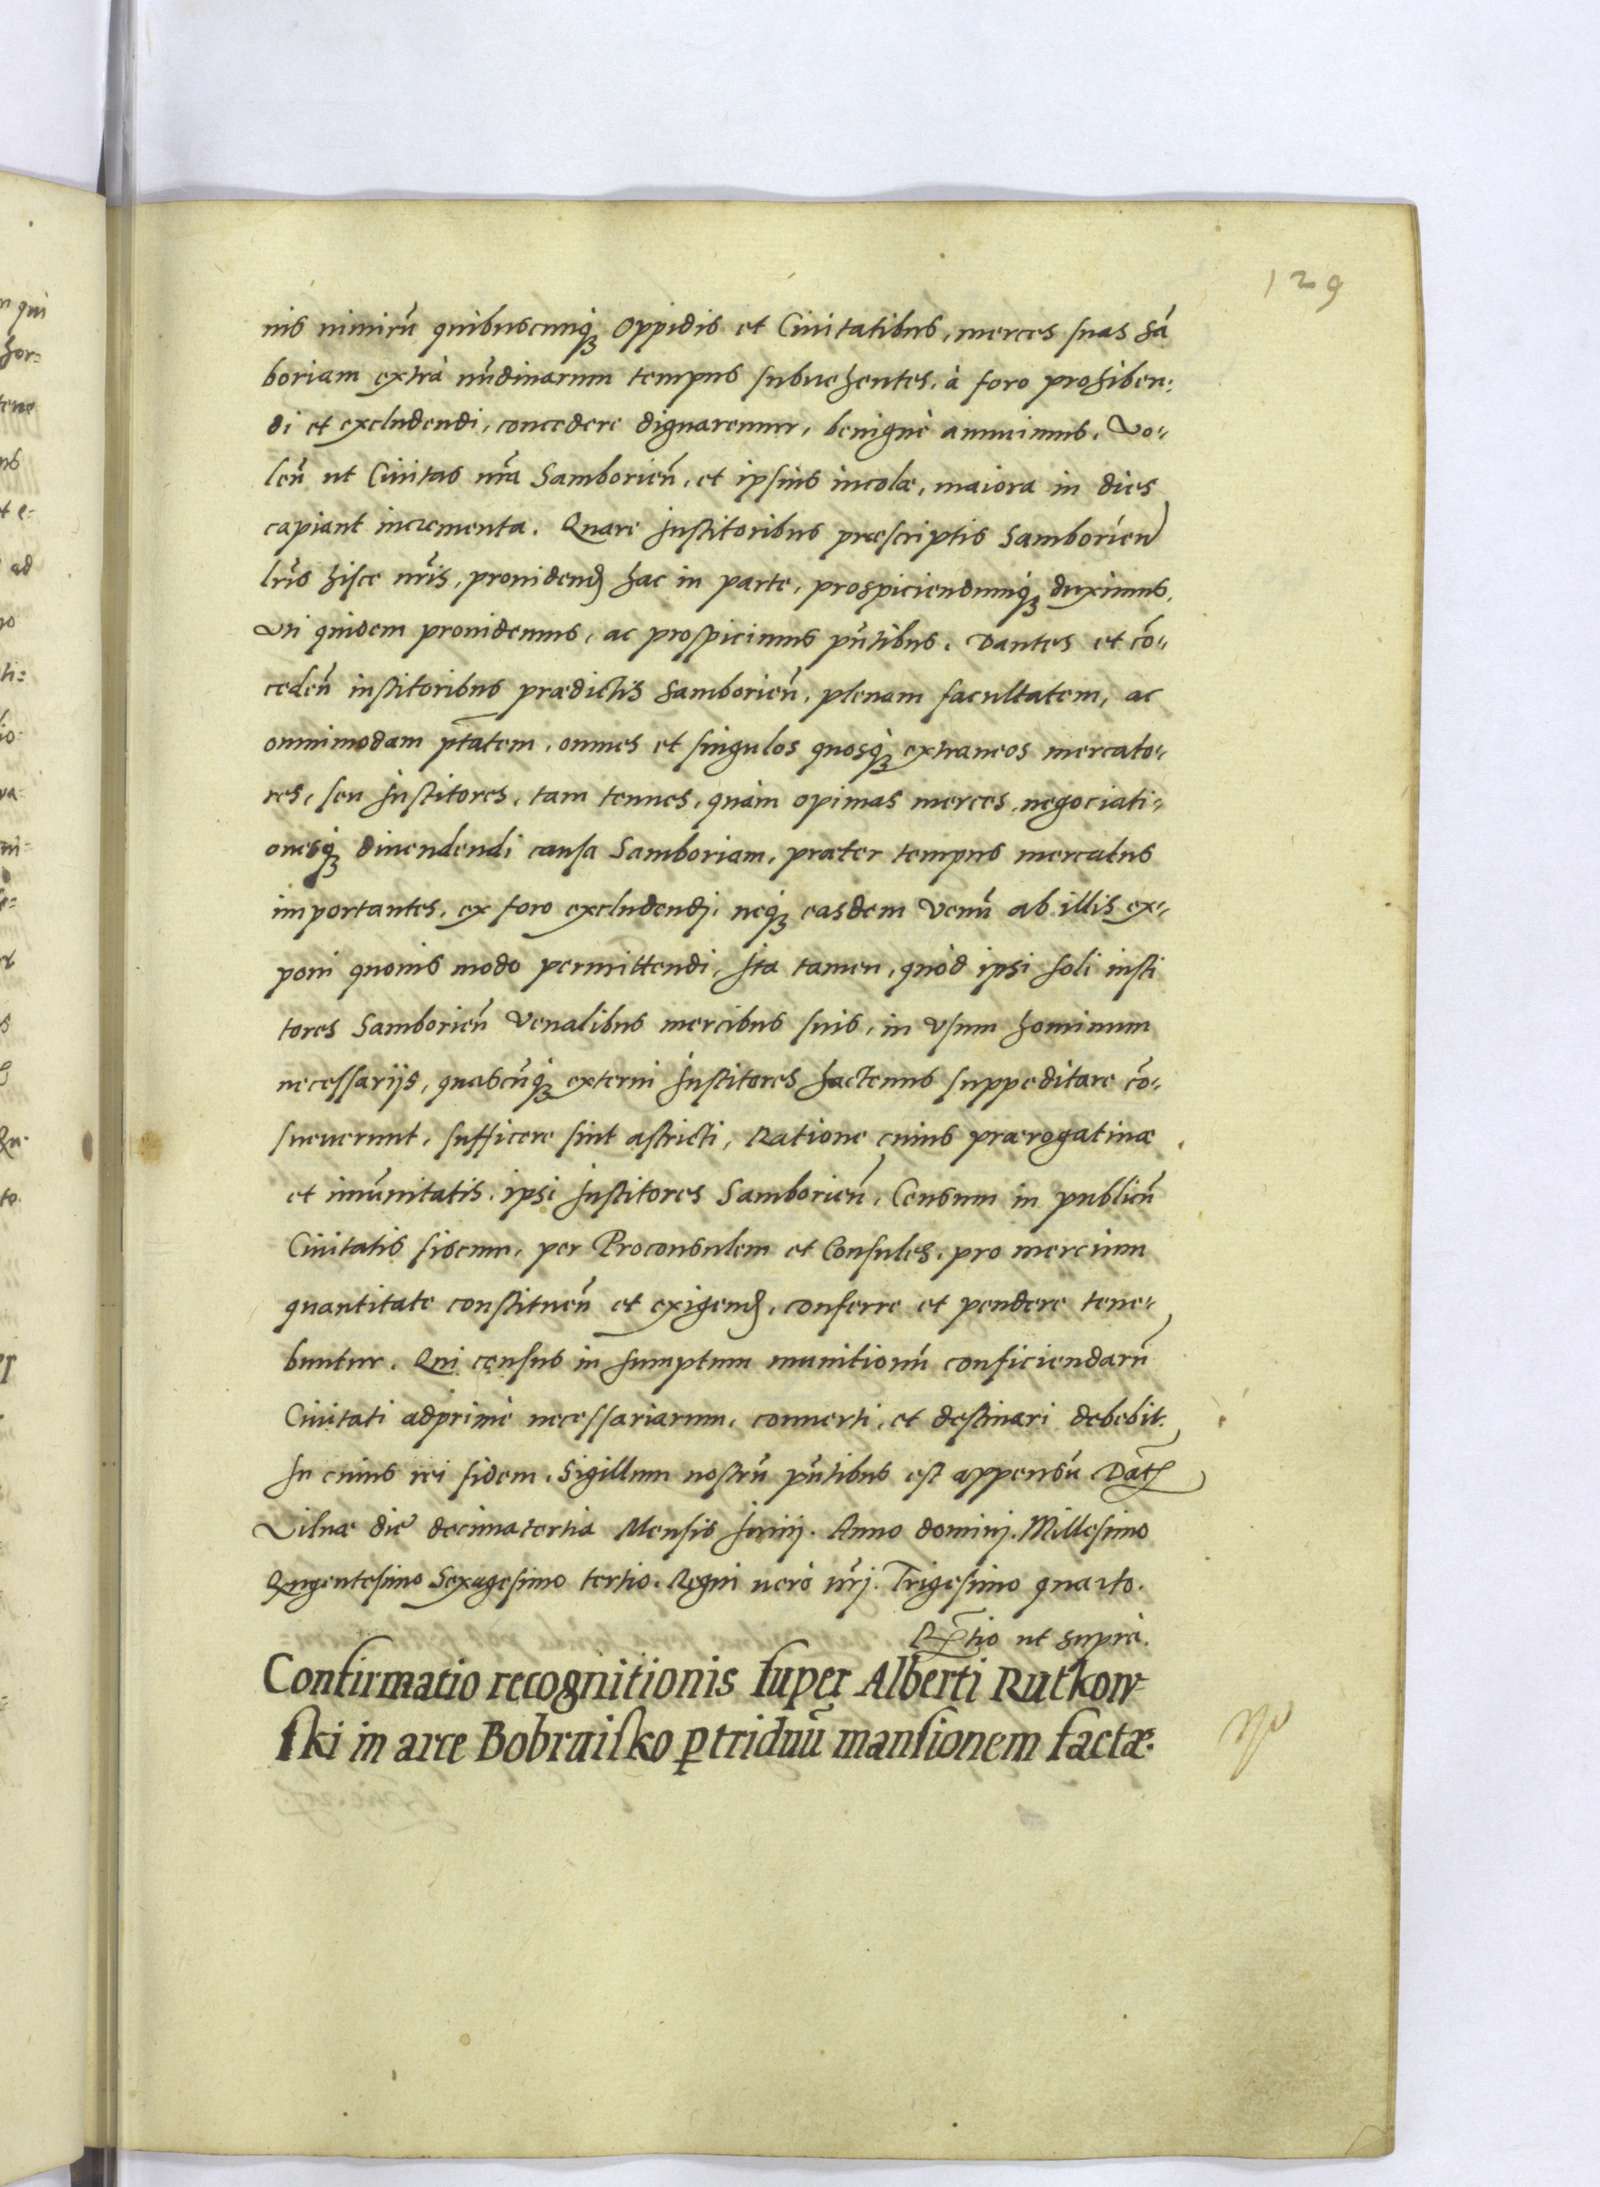 129
nis nimirũ quibuscunq; Oppidis et Ciuitatibus, merces suas Sã
boriam extrà nũdinarum tempus subuehentes, à foro prohiben-
di et excludendi, concedere dignaremur, benignè annuimus. Vo-
leñ ut Ciuitas nr̃a Samborieñ, et ipsius incolæ, maiora in dies
capiant incrementa. Quare Institoribus præscriptis Samborien
lr̃is hisce nr̃is, prouidend hac in parte, prospiciendumq; duximus.
Vti quidem prouidemus, ac prospicimus pñtibus. Dantes et cõ-
cedeñ institoribus prædictis Samborieñ, plenam facultatem, ac
omnimodam ptãtem, omnes et singulos quosq; extraneos mercato-
res, seu Institores, tam tenues, quàm opimas merces, negociati-
onesq; diuendendi causa Samboriam, præter tempus mercatus
importantes, ex foro excludendj, neq; easdem Venũ ab illis ex-
poni quouis modo permittendi, Ita tamen, quòd ipsi soli insti
tores Samborieñ Venalibus mercibus suis, in Vsum hominum
necessarijs, quascũq; externi Institores hactenus suppeditare cõ-
sueuerunt, sufficere sint astricti, Ratione cuius prærogatiuæ
et imũnitatis, ipsi Institores Samborieñ, Censum in publicũ
Ciuitatis fiscum, per Proconsulem et Consules, pro mercium
quantitate constitueñ et exigend, conferre et pendere tene-
buntur. Qui census in sumptum munitionũ conficiendarũ
Ciuitati adprimè necessariarum, conuerti, et destinari debebit.
In cuius rei fidem, Sigillum nostrũ pñtibus est appensũ. Dat
Vilnæ die decimatertia Mensis Junij. Anno dominj. Millesimo
Qngentesimo Sexagesimo tertio. Regni uerò nr̃j. Trigesimo quarto.
Rtio ut supra.
Confirmatio recognitionis super Alberti Rutkow-
ski in arce Bobruisko ꝑ triduũ mansionem factæ.